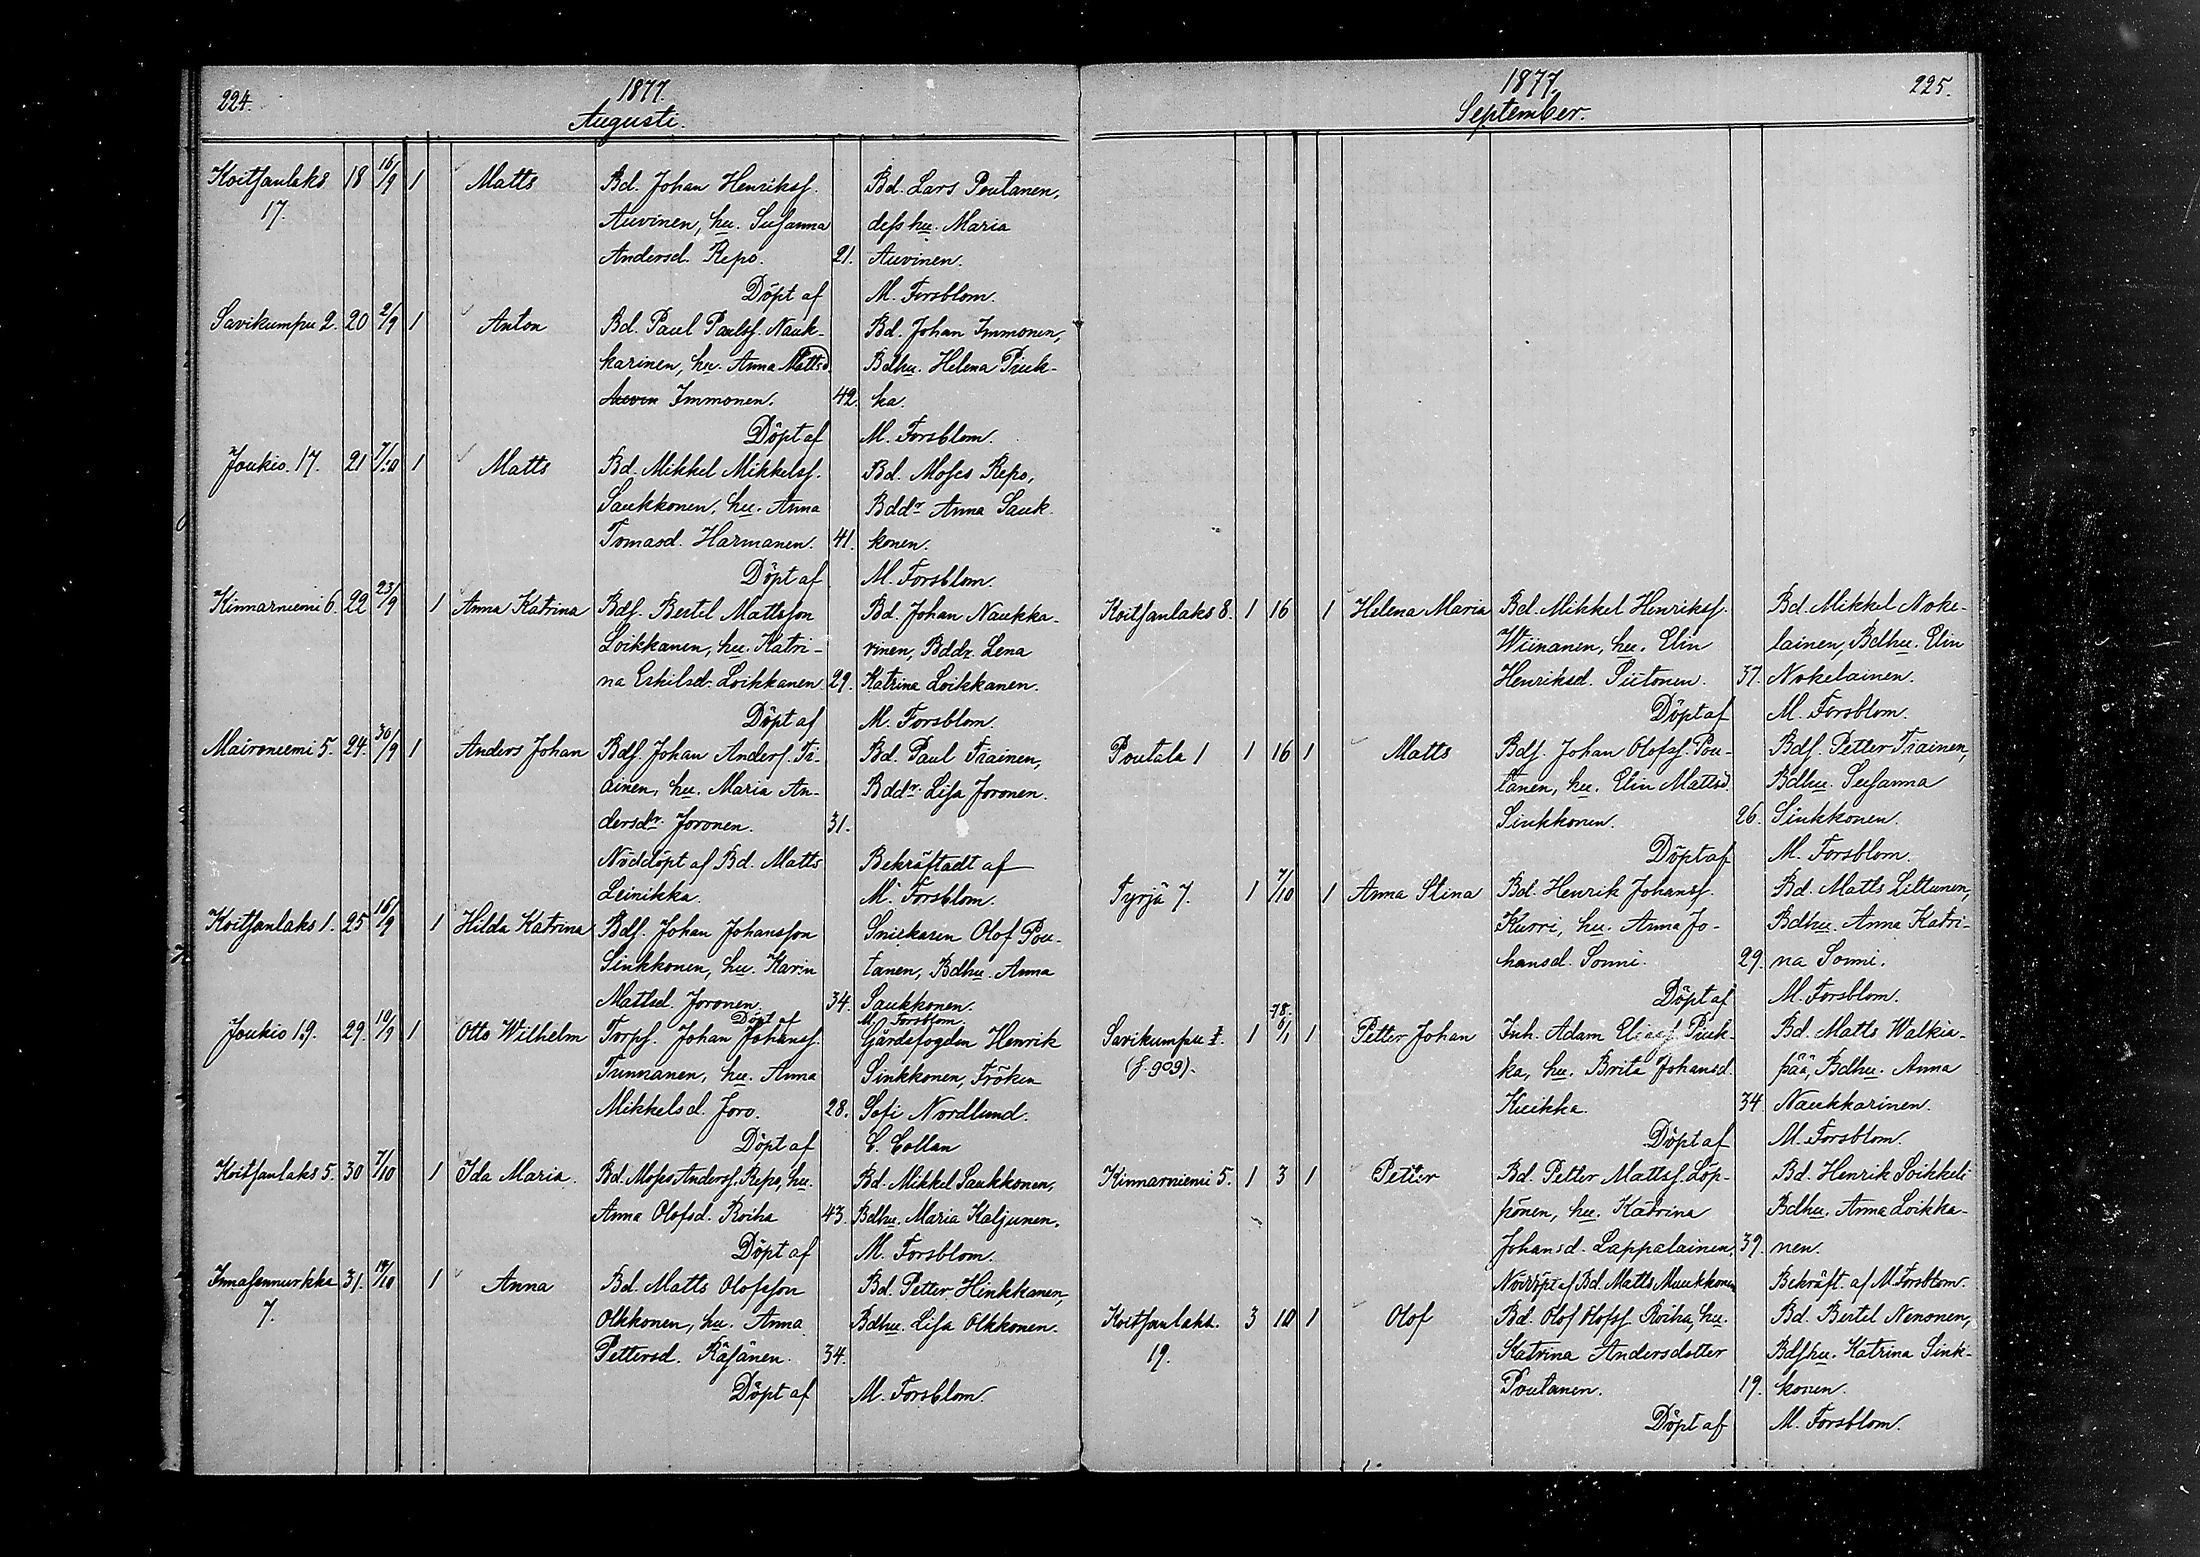 224.
1877.
Augusti.
Koitsanlaks 18 16/9 1 Matts Bd. Johan Henrikss. Bd. Lars Poutanen,
17. Auvinen, hu. Susanna dess hu. Maria
Andersd. Repo. 21. Auvinen.
Döpt af M. Forsblom.
Savikumpu 2. 20 2/9 1 Anton Bd. Paul Paulss. Nauk- Bd. Johan Immonen,
karinen, hu. Anna Mattsd. Bdhu. Helena Piuk-
Auvin Immonen. 42. ka.
Döpt af M. Forsblom.
Joukio 17. 21 7/10 1 Matts Bd. Mikkel Mikkelss. Bd. Moses Repo,
Saukkonen, hu. Anna Bddr Anna Sauk-
Tomasd. Harmanen. 41. konen.
Döpt af M. Forsblom.
Kinnarniemi 6. 22 23/9 1 Anna Katrina Bds. Bertel Mattsson Bd. Johan Naukka-
Loikkanen, hu. Katri- rinen, Bddr. Lena
na Eskilsd. Loikkanen 29. Katrina Loikkanen.
Döpt af M. Forsblom.
Maironiemi 5. 24. 30/9 1 Anders Johan Bds. Johan Anderss. Ti- Bd. Paul Tiainen,
ainen, hu. Maria An- Bddr. Lisa Joronen.
dersdr. Joronen. 31.
Nöddöpt af Bd. Matts Bekräftadt af
Leinikka. M. Forsblom.
Koitsanlaks 1. 25 16/9 1 Hilda Katrina Bds. Johan Johansson Snickaren Olof Pou-
Sinkkonen, hu. Karin tanen, Bdhu. Anna
Mattsd. Joronen. 34. Saukkonen.
Döpt af M. Forsblom.
Joukio 19. 29. 10/9 1 Otto Wilhelm Torps. Johan Johanss. Gårdsfogden Henrik
Tunnanen, hu. Anna Sinkkonen, Fröken
Mikkelsd. Joro. 28. Sofi Nordlund.
Döpt af C. Collan
Koitsanlaks 5. 30 7/10 1 Ida Maria. Bd. Moses Anderss. Repo, hu. Bd. Mikkel Saukkonen,
Anna Olofsd. Roiha 43. Bdhu. Maria Kaljunen.
Döpt af M. Forsblom.
Innasennurkka 31. 14/10 1 Anna Bd. Matts Olofsson Bd. Petter Hinkkanen,
7. Olkkonen, hu. Anna Bdhu. Lisa Olkkonen.
Pettersd. Räsänen. 34.
Döpt af M. Forsblom.
1877.
225.
September.
Koitsanlaks 8. 1 16 1 Helena Maria Bd. Mikkel Henrikss. Bd. Mikkel Noke-
Wiinanen, hu. Elin lainen, Bdhu. Elin
Henriksd. Siitonen. 37. Nokelainen.
Döpt af M. Forsblom.
Poutala 1 1 16 1 Matts Bds. Johan Olofss. Pou- Bds. Petter Tiainen,
tanen, hu. Elin Mattsd. Bdhu. Susanna
Sinkkonen. 26. Sinkkonen.
Döpt af M. Forsblom.
Tyrjä 7. 1 7/10 1 Anna Stina Bd. Henrik Johanss. Bd. Matts Liltunen,
Kurri, hu. Anna Jo- Bdhu. Anna Katri-
hansd. Sonni. 29. na Sonni.
Döpt af M. Forsblom.
Savikumpu 2. 1 78. 6/1 1 Petter Johan Inh. Adam Eliass. Piuk- Bd. Matts Walkia-
(f. 909). ka, hu. Brita Johansd. pää, Bdhu. Anna
Kuikka. 34 Naukkarinen.
Döpt af M. Forsblom.
Kinnarniemi 5. 1 3 1 Petter Bd. Petter Mattss. Löp- Bd. Henrik Loikkeli
pönen, hu. Katrina Bdhu. Anna Loikka-
Johansd. Lappalainen. 39. nen.
Nöddöpt af Bd. Matts Muukkonen Bekräft. af M. Forsblom.
Koitsanlaks. 3 10 1 Olof Bd. Olof Olofss. Roiha, hu. Bd. Bertel Nenonen,
19. Katrina Andersdotter Bdshu. Katrina Sink-
Poutanen. 19. konen.
Döpt af M. Forsblom.